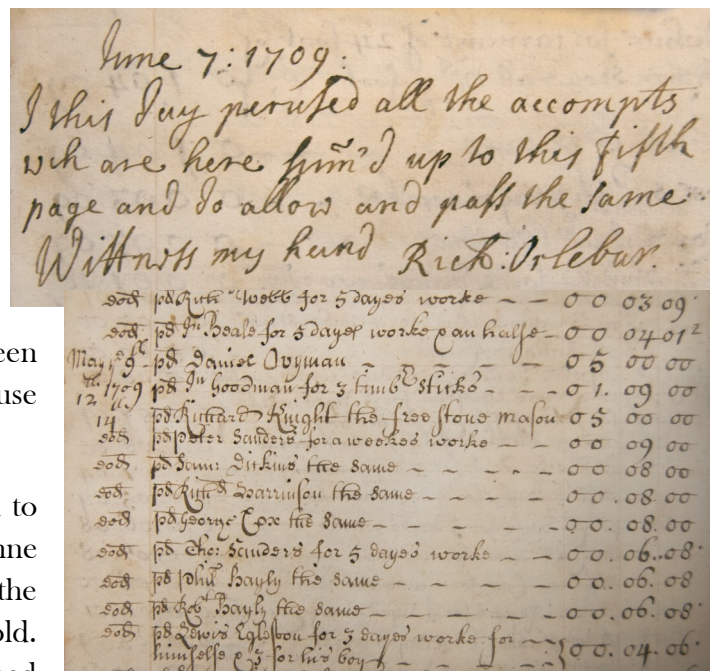 June 7: 1709:
I this Day perused all the accompts
wch are here sum̃'d up to this fifth
page and do allow and pass the same
Wittness my hand Rich: Orlebar.
eod pd Rich Webb for 5 dayes worke - - 00 03 09
eod pd Jn Beale for 5 dayes worke & an halfe - 00 04 01 2
May 9 pd Daniel Ovyman - - - - 05 00 00
12 1709 pd Jn Goodman for 3 timbr sticks - - 01. 09 00
14 pd Richard Knight the free stone mason 05 00 00
eod pd peter Sanders for a weekes worke - - 00 09 00
eod pd Sam: Dickins the same - - - - 00 08 00
eod pd Rich Harrinson the same - - - 00. 08. 00
eod pd George Cox the same - - - 00. 08. 00
eod pd Tho: Sanders for 5 dayes worke - - 00. 06. 08
eod pd Phil Hayly the same - - - - 00. 06. 08
eod pd Robt Hayly the same - - - - 00. 06. 08
eod pd Lewis for 3 dayes worke for
himselfe & 3 for his boy 00. 04. 06
een
use
to
nne
the
old.